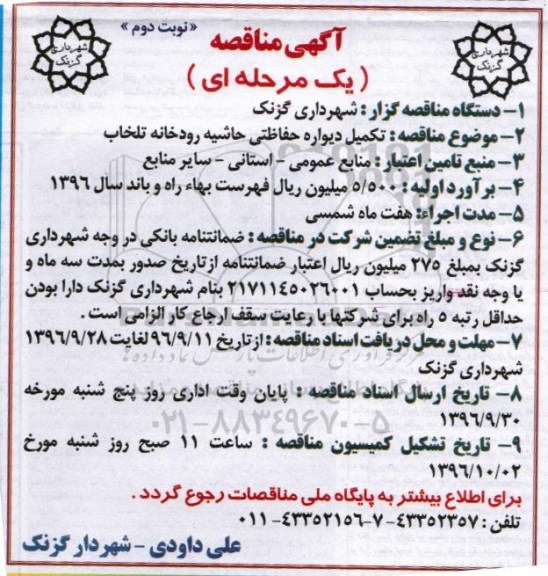 « نوبت دوم »
آگهی مناقصه
( یک مرحله ای )
شهرداری گزنک
شهرداری گزنک
۱- دستگاه مناقصه گزار : شهرداری گزنک
۲- موضوع مناقصه : تکمیل دیواره حفاظتی حاشیه رودخانه تلخاب
۳- منبع تامین اعتبار : منابع عمومی - استانی - سایر منابع
۴- برآورد اولیه : ۵/۵۰۰ میلیون ریال فهرست بهاء راه و باند سال ۱۳۹۶
۵- مدت اجراء: هفت ماه شمسی
۶- نوع و مبلغ تضمین شرکت در مناقصه : ضمانتنامه بانکی در وجه شهرداری
گزنک بمبلغ ۲۷۵ میلیون ریال اعتبار ضمانتنامه ازتاریخ صدور بمدت سه ماه و
یا وجه نقد واریز بحساب ۲۱۷۱۱۴۵۰۲۶۰۰۱ بنام شهرداری گزنک دارا بودن
حداقل رتبه ۵ راه برای شرکتها با رعایت سقف ارجاع کار الزامی است .
۷- مهلت و محل دریافت اسناد مناقصه : ازتاریخ ۹۶/۹/۱۱ لغایت ۱۳۹۶/۹/۲۸
شهرداری گزنک
۸- تاریخ ارسال اسناد مناقصه : پایان وقت اداری روز پنج شنبه مورخه
۱۳۹۶/۹/۳۰
۹- تاریخ تشکیل کمیسیون مناقصه : ساعت ۱۱ صبح روز شنبه مورخ
۱۳۹۶/۱۰/۰۲
برای اطلاع بیشتر به پایگاه ملی مناقصات رجوع گردد .
تلفن : ۴۳۳۵۲۳۵۷-۷-۴۳۳۵۲۱۵۶-۰۱۱
علی داودی - شهردار گزنک
۰۲۱-۸۸۳۴۹۶۷۰-۵